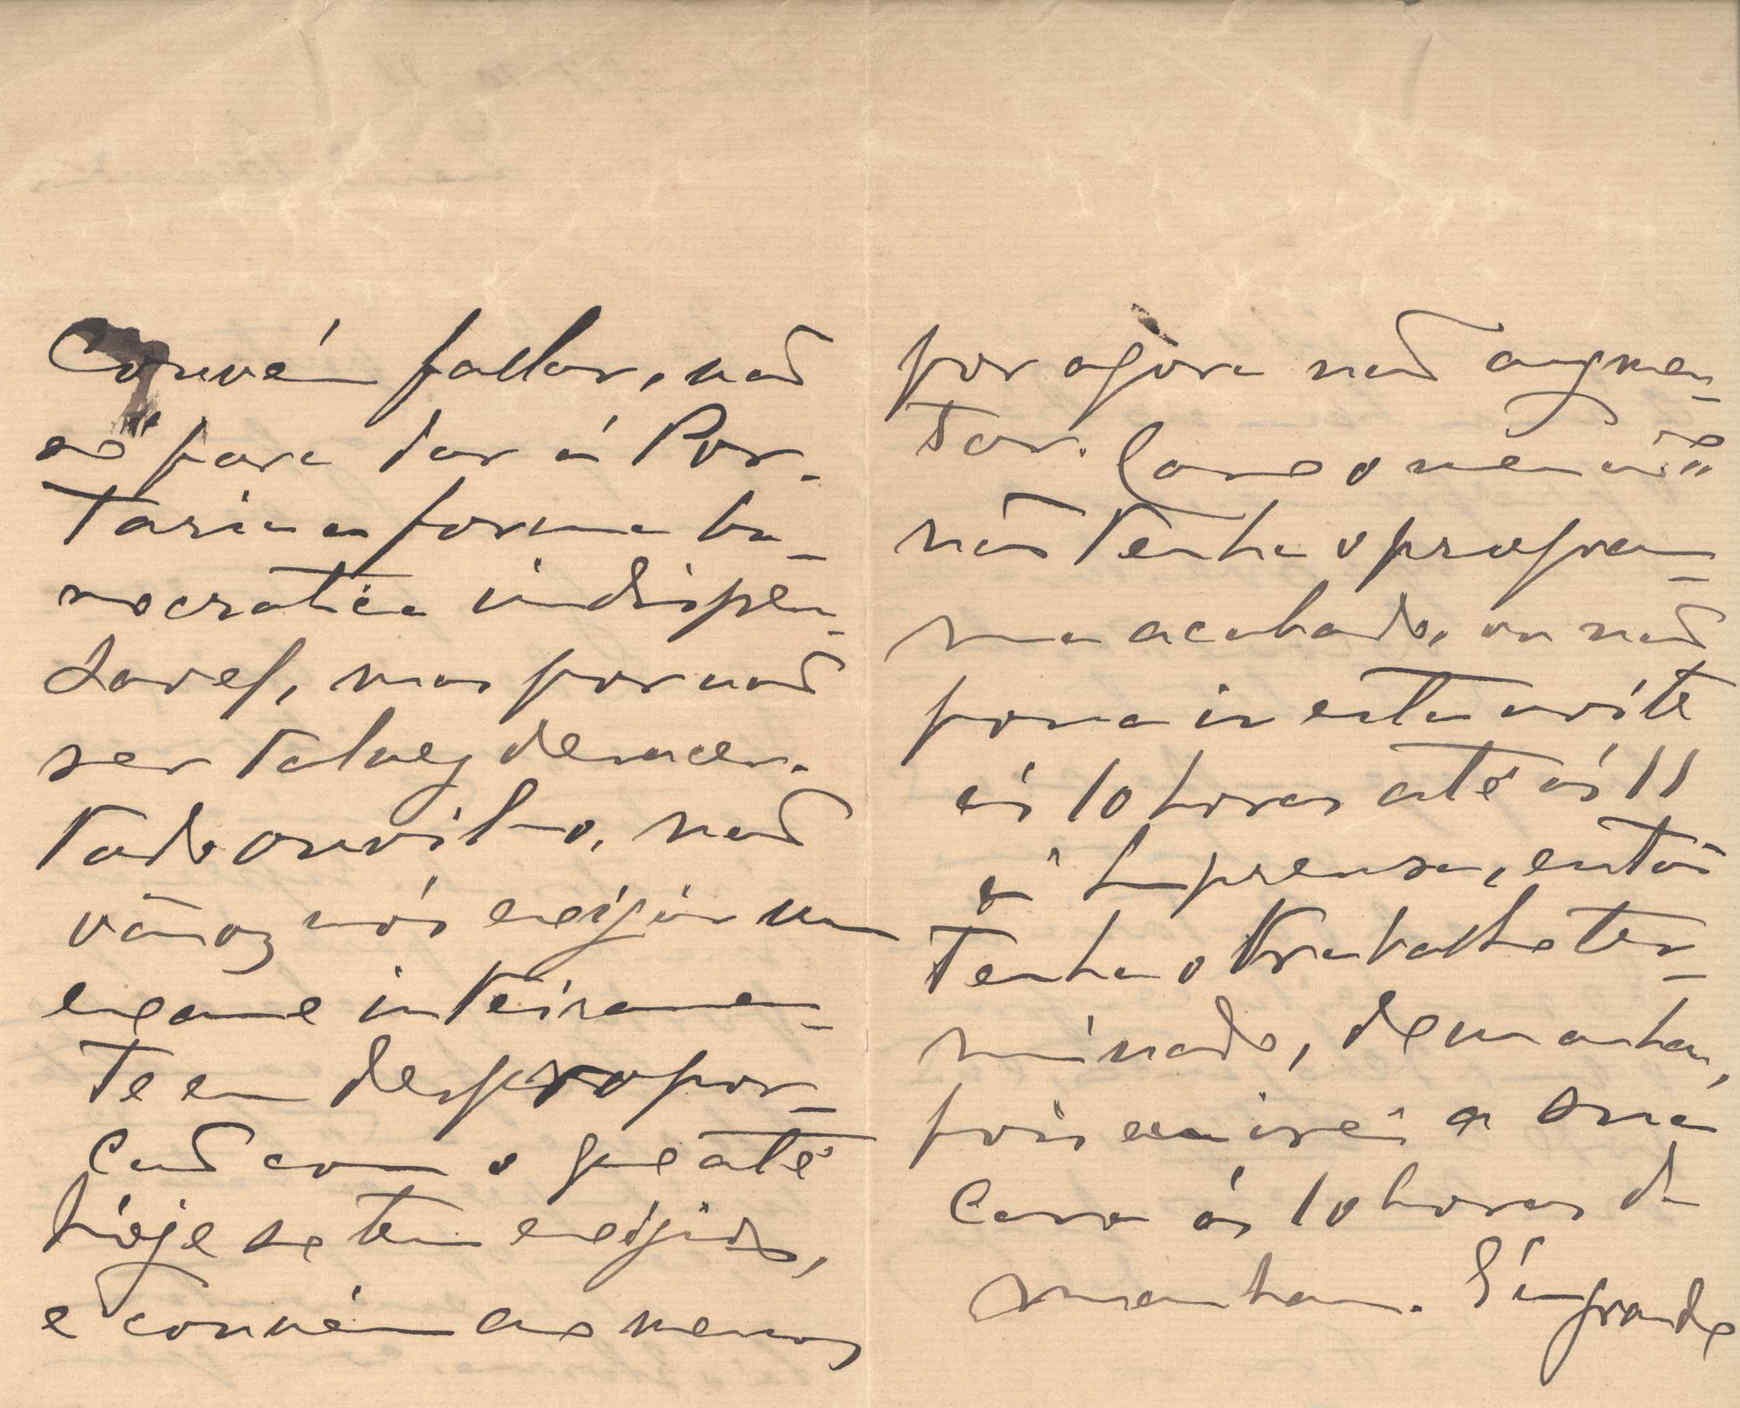 Convém fallar, não
só para dar á Por-
taria a forma bu-
rocratica indispen-
savel, mas por não
ser talvez desacer-
tado ouvil-o, não
vamos nós exigir um
exame inteiramen-
te em despropor-
ção com o que até
hoje se tem exigido,
e convém ao menos
por agora não augmen-
tar. Caso o menino
não tenha o program-
ma acabado, ou não
possa ir esta noite
ás 10 horas até ás 11
á Imprensa, então
tenha o trabalho ter-
minado, de manhan,
pois eu irei a sua
casa ás 10 horas da
manhan. É um grande